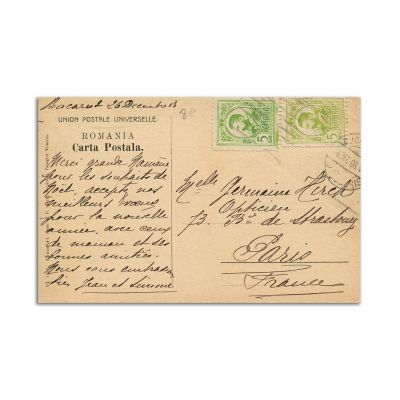 Bucarest 26 Decembre 08
UNION POSTALE UNIVERSELLE.
ROMANIA
Carta Postala.
Merci grande Mamma
pour les souhaits de
Noël, acceptez nos
meilleurs vœux
pour la nouvelle
année, avec ceux
de maman et ses
bonnes amitiés.
Nous vous embrassons
bien Jean et Simone
8
5
5
Melle Germaine Hirch
Opticien
73. Bd de Strasbourg
Paris
France